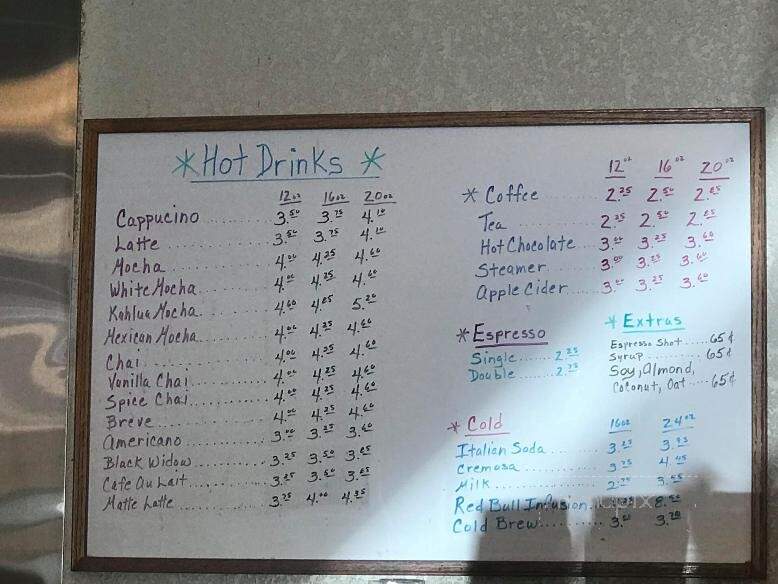 *Hot Drinks*
12oz 16oz 20oz
Cappucino 3.50 3.75 4.10
Latte 3.50 3.75 4.10
Mocha 4.00 4.25 4.60
White Mocha 4.00 4.25 4.60
Kahlua Mocha 4.60 4.85 5.20
Mexican Mocha 4.00 4.25 4.60
Chai 4.00 4.25 4.60
Vanilla Chai 4.00 4.25 4.60
Spice Chai 4.00 4.25 4.60
Breve 4.00 4.25 4.60
Americano 3.00 3.25 3.60
Black Widow 3.25 3.50 3.85
Cafe Au Lait 3.25 3.50 3.85
Matte Latte 3.75 4.00 4.35
12oz 16oz 20oz
* Coffee 2.25 2.50 2.85
Tea 2.25 2.50 2.85
Hot Chocolate 3.00 3.25 3.60
Steamer 3.00 3.25 3.60
Apple Cider 3.00 3.25 3.60
* Espresso
Single 2.25
Double 2.75
* Extras
Espresso Shot 65¢
Syrup 65¢
Soy, Almond,
Coconut, Oat 65¢
* Cold
16oz 24oz
Italian Soda 3.25
Cremosa 3.75 4.45
Milk
Red Bull Infusion 8.50
Cold Brew 3.00 3.70